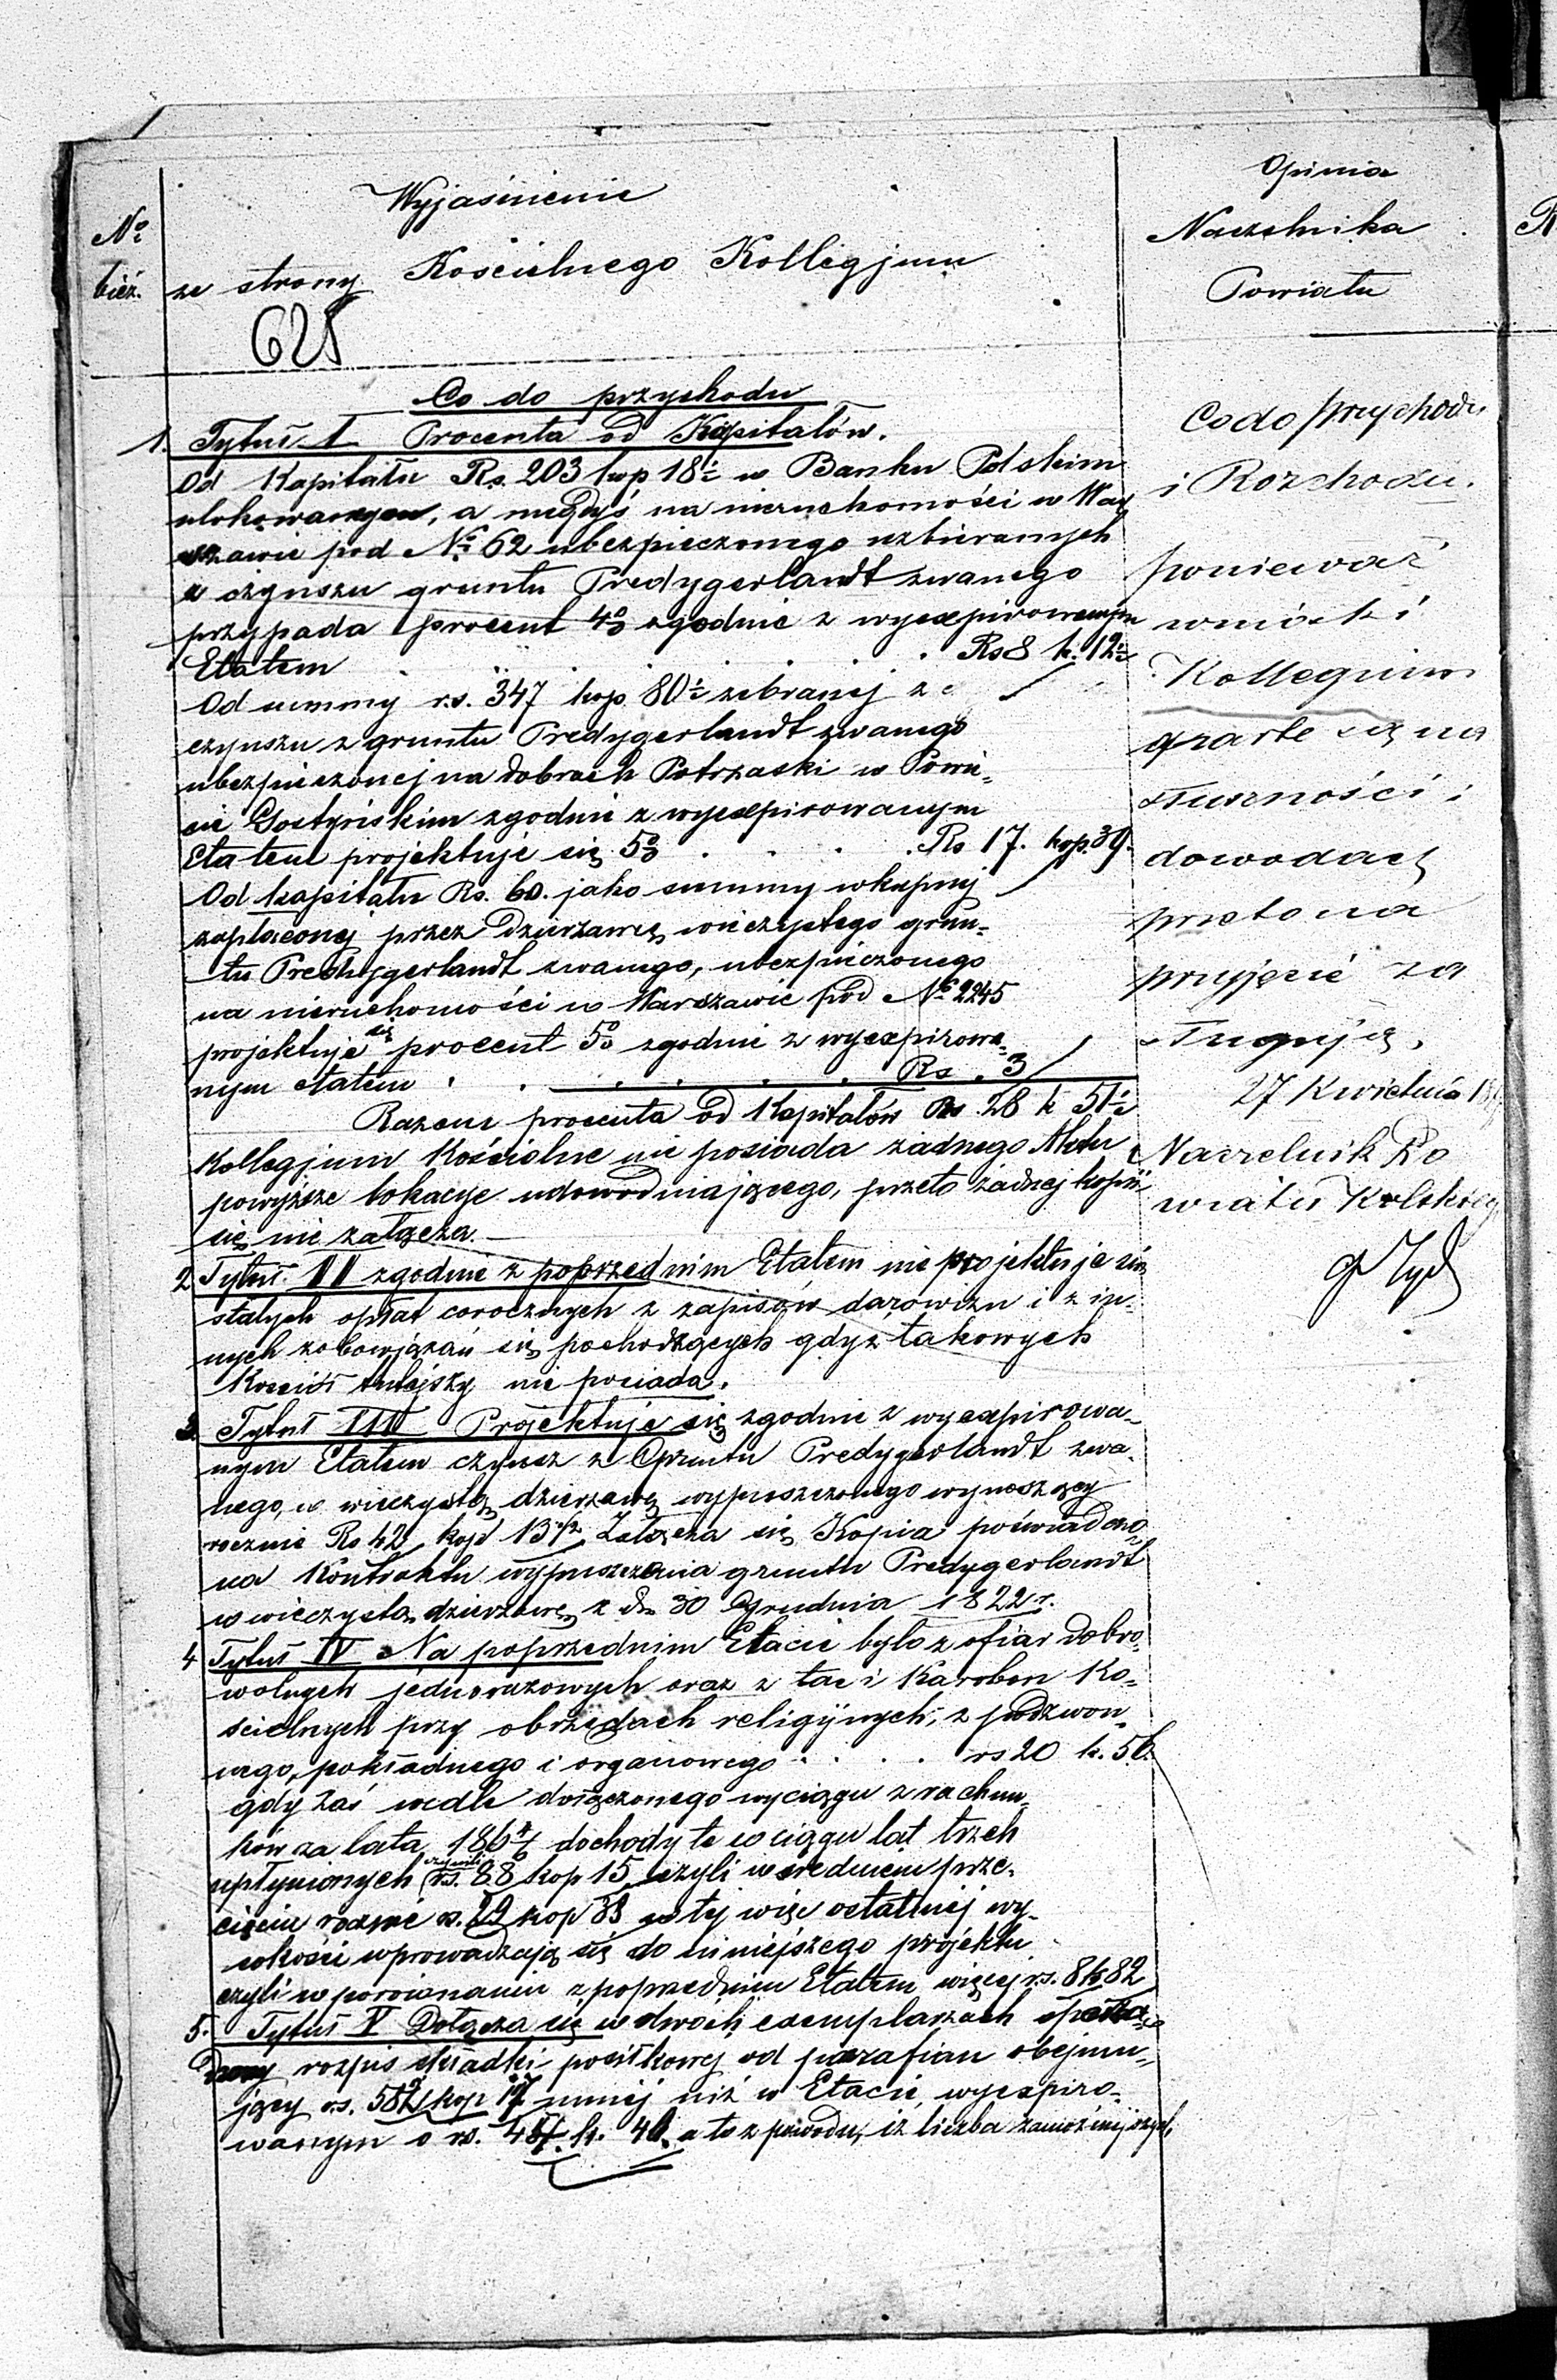 No
bież.
Wyjaśnienie
ze strony Kościelnego Kollegjum
625
Opinia
Naczelnika
Powiatu
Co do przychodu
1. Tytuł I Procenta od Kapitałów.
Od Kapitału Rs. 203 kop 18½ w Banku Polskim
ulokowanym, a niegdyś na nieruchomości w War
szawie pod No 62 ubezpieczonego uzbieranych
z czynszu gruntu Predygerlandt zwanego
przypada procent 4% zgodnie z wyexpirowanym
Etatem . . . . . Rs 8 k. 12½
Od summy rs. 347 kop. 80½ zebranej z
czynszu z gruntu Predygerlandt zwanego
ubezpieczonej na dobrach Potrzaski w Powie=
cie Gostyńskim zgodnie z wyexpirowanym
Etatem projektuje się 5% . . . . Rs 17. kop. 39.
Od kapitału Rs. 60. jako summy wkupnej
zapłaconej przez Dzierżawcę wieczystego grun=
tu Predygerlandt zwanego, ubezpieczonego
na nieruchomości w Warszawie pod No 2245
projektuje się procent 5% zgodnie z wyexpirowa=
nym etatem . . . . . . Rs. 3
Razem procenta od Kapitałów Rs. 28 k 51½
Kollegjum Kościelne nie posiada żadnego Aktu
powyższe lokacye udowodniającego, przeto żadnej kopii
się nie załącza.
2 Tytuł II zgodnie z poprzednim Etatem nie projektuje się
stałych opłat corocznych z zapisów darowizn i z in=
nych zobowiązań się pochodzących gdyż takowych
Kościół tutejszy nie posiada.
3. Tytuł III Projektuje się zgodnie z wyexpirowa=
nym Etatem czynsz z Gruntu Predygerlandt zwa=
nego, w wieczystą dzierżawę wypuszczonego wynoszący
rocznie Rs 42 kop 13½ Załącza się Kopia poświadczo=
na Kontraktu wypuszczenia gruntu Predygerlandt
w wieczystą dzierżawę z dn 30 Grudnia 1822 r.
4 Tytuł IV Na poprzednim Etacie było z ofiar dobro=
wolnych jednorazowych oraz z tac i Karobon Ko=
ścielnych przy obrzędach religijnych, z podzwon=
nego, pokładnego i organowego . . . . rs 20 k. 56.
gdy zaś wedle dołączonego wyciągu z rachun=
ków za lata 186 4/6 dochody te w ciągu lat trzech
upłynionych czyniły rs. 88 kop 15 czyli w średniem prze=
cięciu rocznie rs. 29 kop 38 w tej więc ostatniej wy=
sokości wprowadzają się do niniejszego projektu
czyli w porównaniu z poprzednim Etatem więcej rs. 8 k 82
5. Tytuł V Dołącza się w dwóch exemplarzach
rozpis składki posiłkowej od parafian obejmu=
jący rs. 582 kop 17 mniej niż w Etacie wyexpiro=
wanym o rs. k. a to z powodu, iż liczba zamożniejszych
Co do przychodu
i Rozchodu.
ponieważ
wnioski
Kollegium
oparte są na
słuszności i
dowodach
przeto na
przyjęcie za
sługują.
27 Kwietnia
Naczelnik Po
wiatu Kolskiego